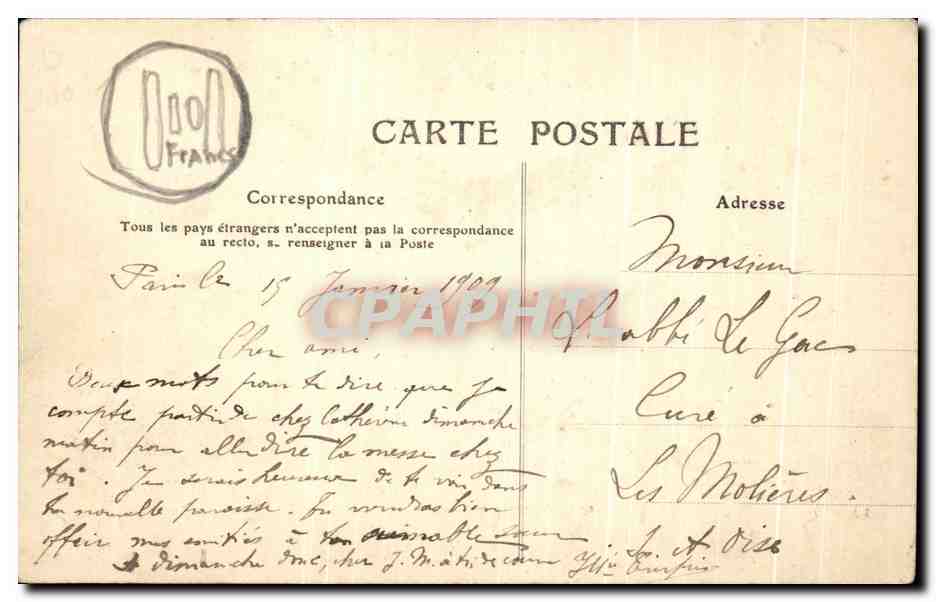 FRANCS
CARTE POSTALE
Correspondance
Tous les pays étrangers n'acceptent pas la correspondance
au recto, se renseigner à la Poste
Adresse
le 15 Janvier 1909
Cher ami,
Deux mots pour te dire que je
compte partir de chez dimanche
matin pour aller dire la messe chez
toi. Je serais heureux de te voir dans
ta nouvelle paroisse. Tu voudras bien
offrir mes amitiés à ton aimable soeur
A dimanche donc, cher J. M. à toi de coeur
Monsieur
l'abbé Le Gac
Curé à
Les Molières.
S. et Oise
CPAPHIL